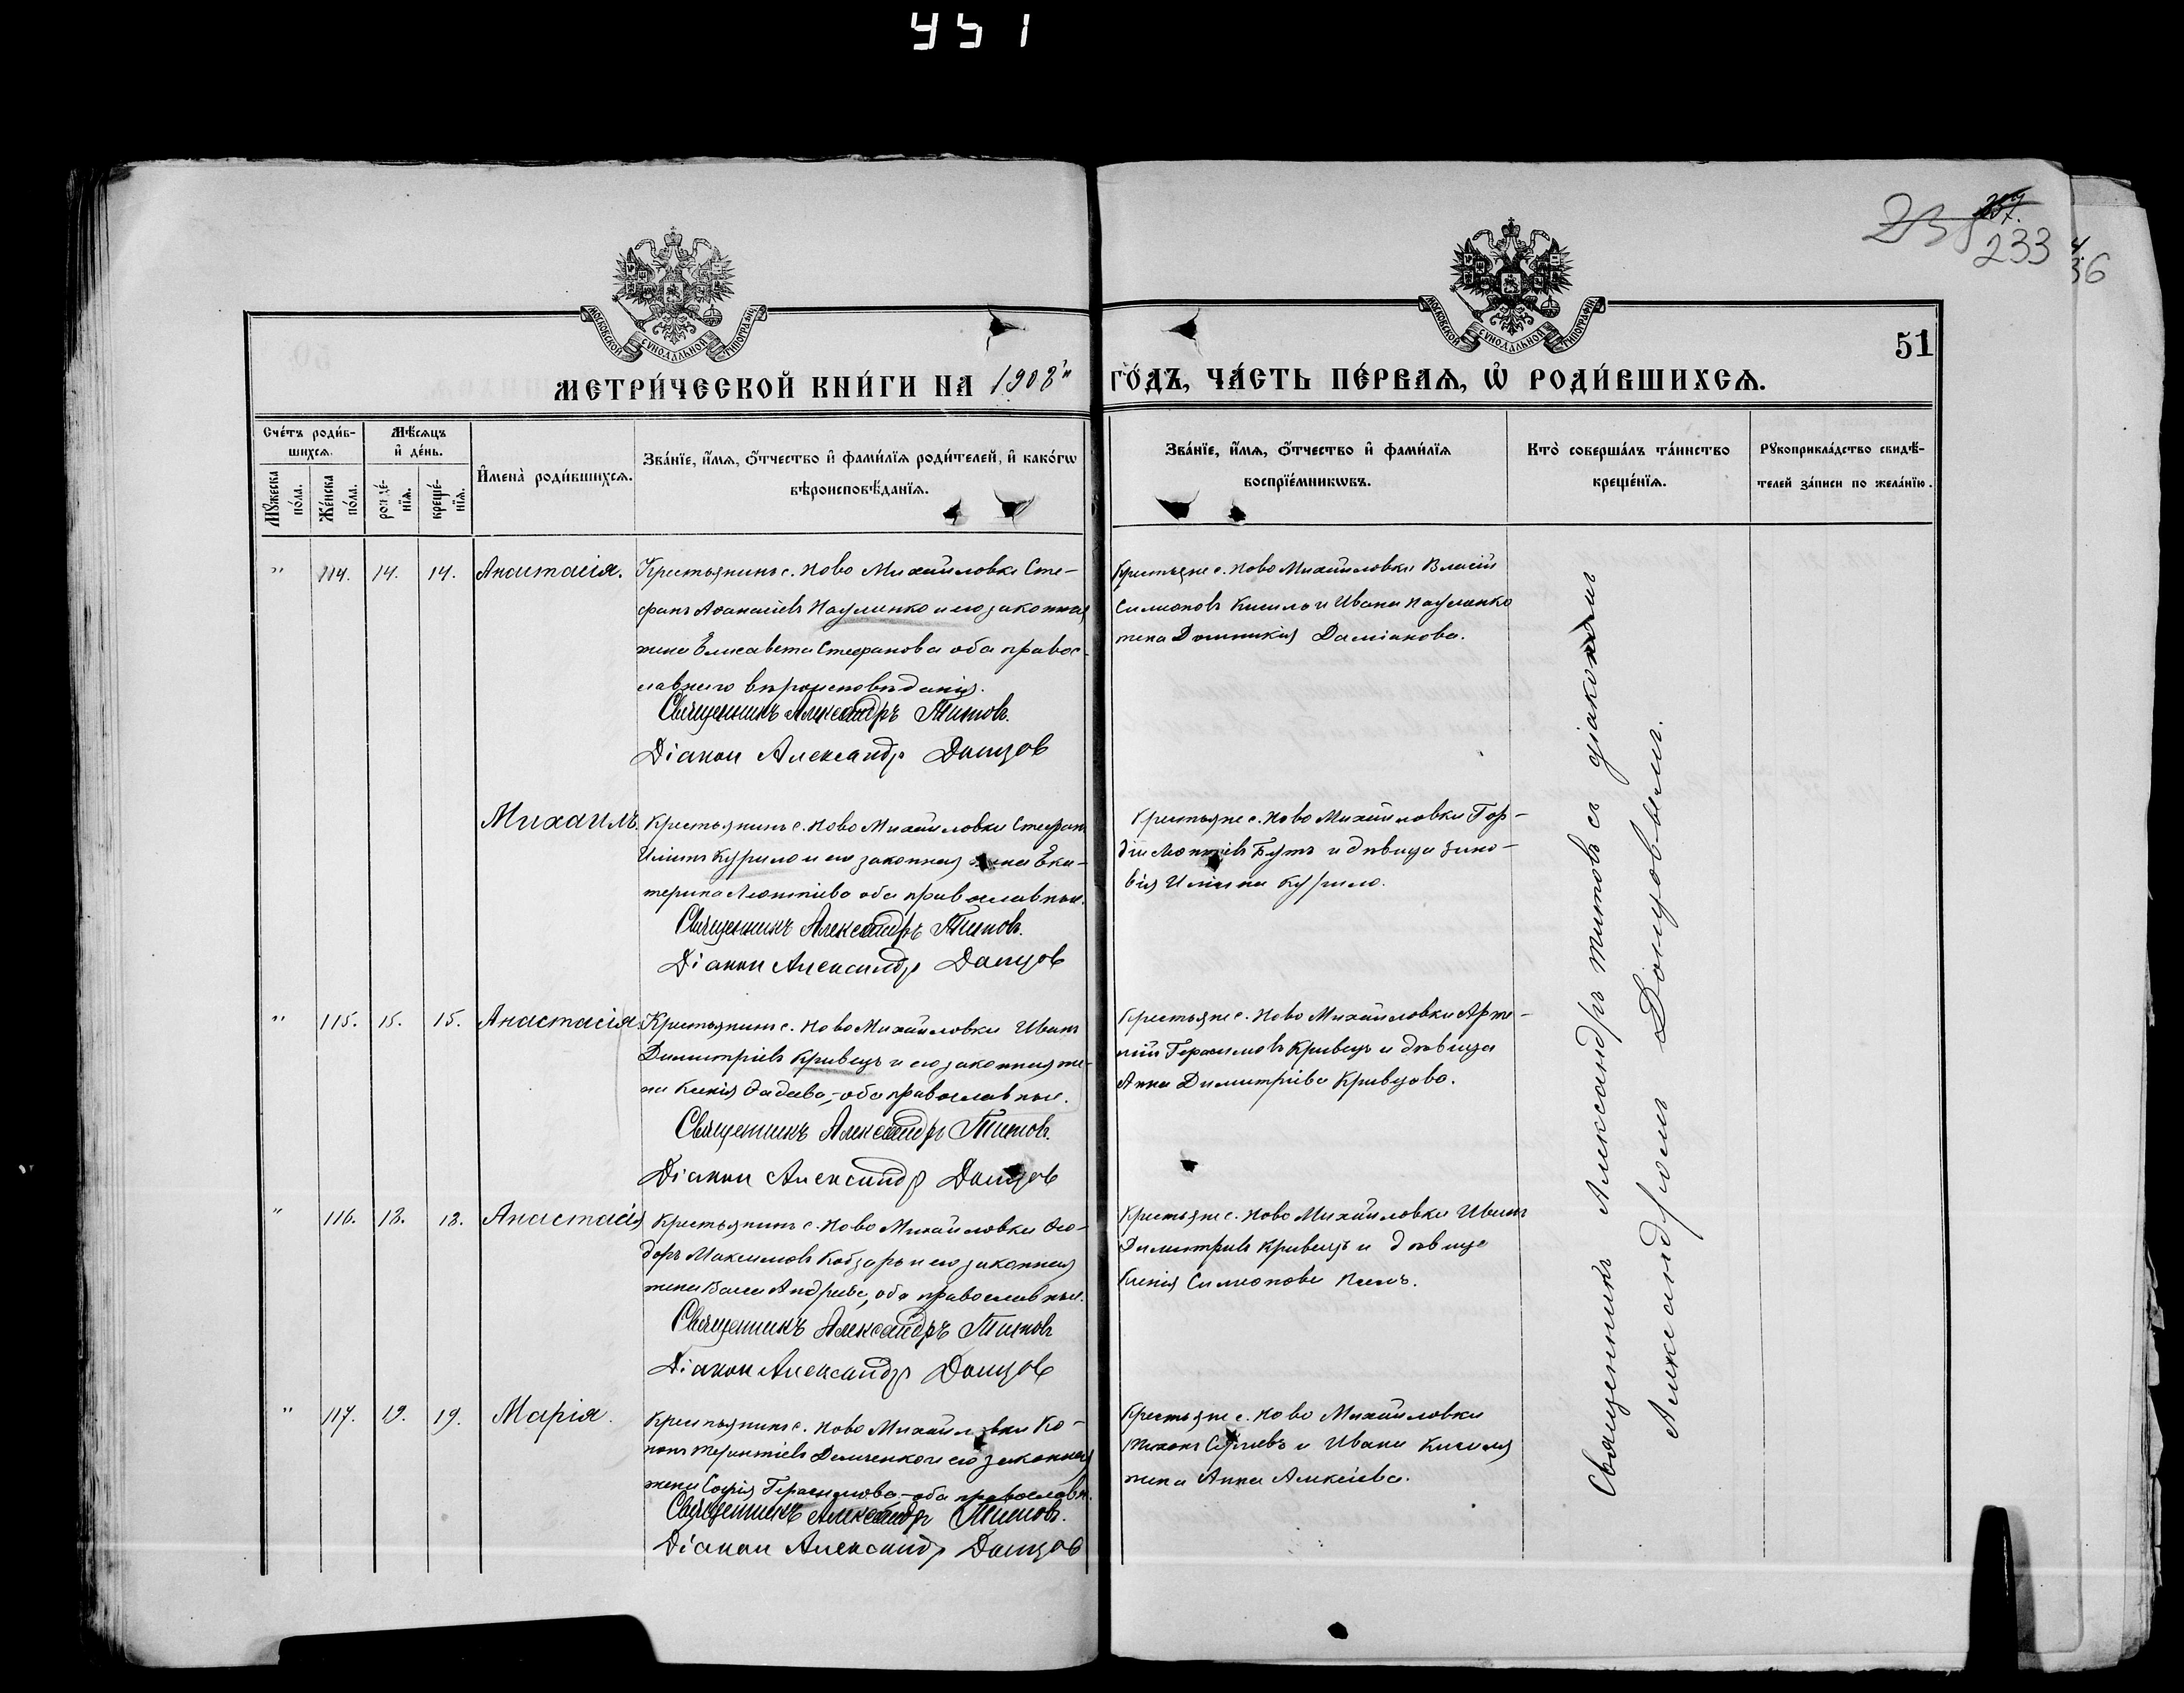 451
257.
233
4.
36
МОСКОВСКОЙ СѴНОДАЛЬНОЙ ТИПОГРАФІИ
МОСКОВСКОЙ СѴНОДАЛЬНОЙ ТИПОГРАФІИ
51
МЕТРИ́ЧЕСКОЙ КНИ́ГИ НА 1908й ГО́ДЪ, ЧА́СТЬ ПЕ́РВАѦ, Ѡ҆ РОДИ́ВШИХСѦ.
Сче́тъ роди́в-
шихсѧ.
Мꙋ́жеска по́ла.
Же́нска по́ла.
Мѣ́сѧцъ и҆ де́нь.
рожде́-нїѧ.
креще́-нїѧ.
И҆мена̀ роди́вшихсѧ.
Зва́нїе, и҆́мѧ, ѻ҆́тчество и҆ фами́лїѧ роди́телей, и҆ како́гѡ
вѣроисповѣ́данїѧ.
Зва́нїе, и҆́мѧ, ѻ҆́тчество и҆ фами́лїѧ
воспрїе́мникѡвъ.
Кто̀ соверша́лъ та́инство
креще́нїѧ.
Рꙋкоприкла́дство свидѣ́-
телей за́писи по жела́нїю.
" 114. 14. 14. Анастасія. Крестьянинъ с. Ново Михайловки Сте-
фанъ Аѳанасіевъ Науменко и его законная
жена Елисавета Стефанова оба правос-
лавнаго вѣроисповѣданія.
Священникъ Александръ Титовъ.
Діакон Александр Донцов
Крестьяне с. Ново Михайловки Власій
Симеоновъ Кисило и Ивана Науменко
жена Домникія Даміанова.
Михаилъ. Крестьянинъ с. Ново Михайловки Стефанъ
Иліинъ Курило и его законная жена Ека-
терина Леонтіева оба православные.
Священникъ Александръ Титовъ.
Діакон Александр Донцов
Крестьяне с. Ново Михайловки Гор-
дій Леонтіевъ Бутъ и дѣвица Зино-
вія Иліина Курило.
" 115. 15. 15. Анастасія Крестьянинъ с. Ново Михайловки Иванъ
Димитріевъ Кривецъ и его законная же-
на Ксенія Фадеева,-оба православные.
Священникъ Александръ Титовъ.
Діакон Александр Донцов
Крестьяне с. Ново Михайловки Арте-
мій Герасимовъ Кривецъ и дѣвица
Анна Димитріева Кривцова.
" 116. 18. 18. Анастасія Крестьянинъ с. Ново Михайловки Ѳео-
доръ Максимовъ Кобзарь и его законная
жена Васса Андреева, оба православные.
Священникъ Александръ Титовъ
Діакон Александр Донцов
Крестьяне с. Ново Михайловки Иванъ
Димитріевъ Кривецъ и дѣвица
Ксенія Симеонова
" 117. 19. 19. Марія. Крестьянинъ с. Ново Михайловки Ко-
нонъ Терентіевъ Демченко и его законная
жена Софія Герасимова-оба православн.
Священникъ Александръ Титовъ.
Діакон Александр Донцов
Крестьяне с. Ново Михайловки
Тихонъ Сергіевъ и Ивана Киселя
жена Анна Алексіева.
Священникъ Александръ Титовъ съ діакономъ
Александромъ Донцовымъ.